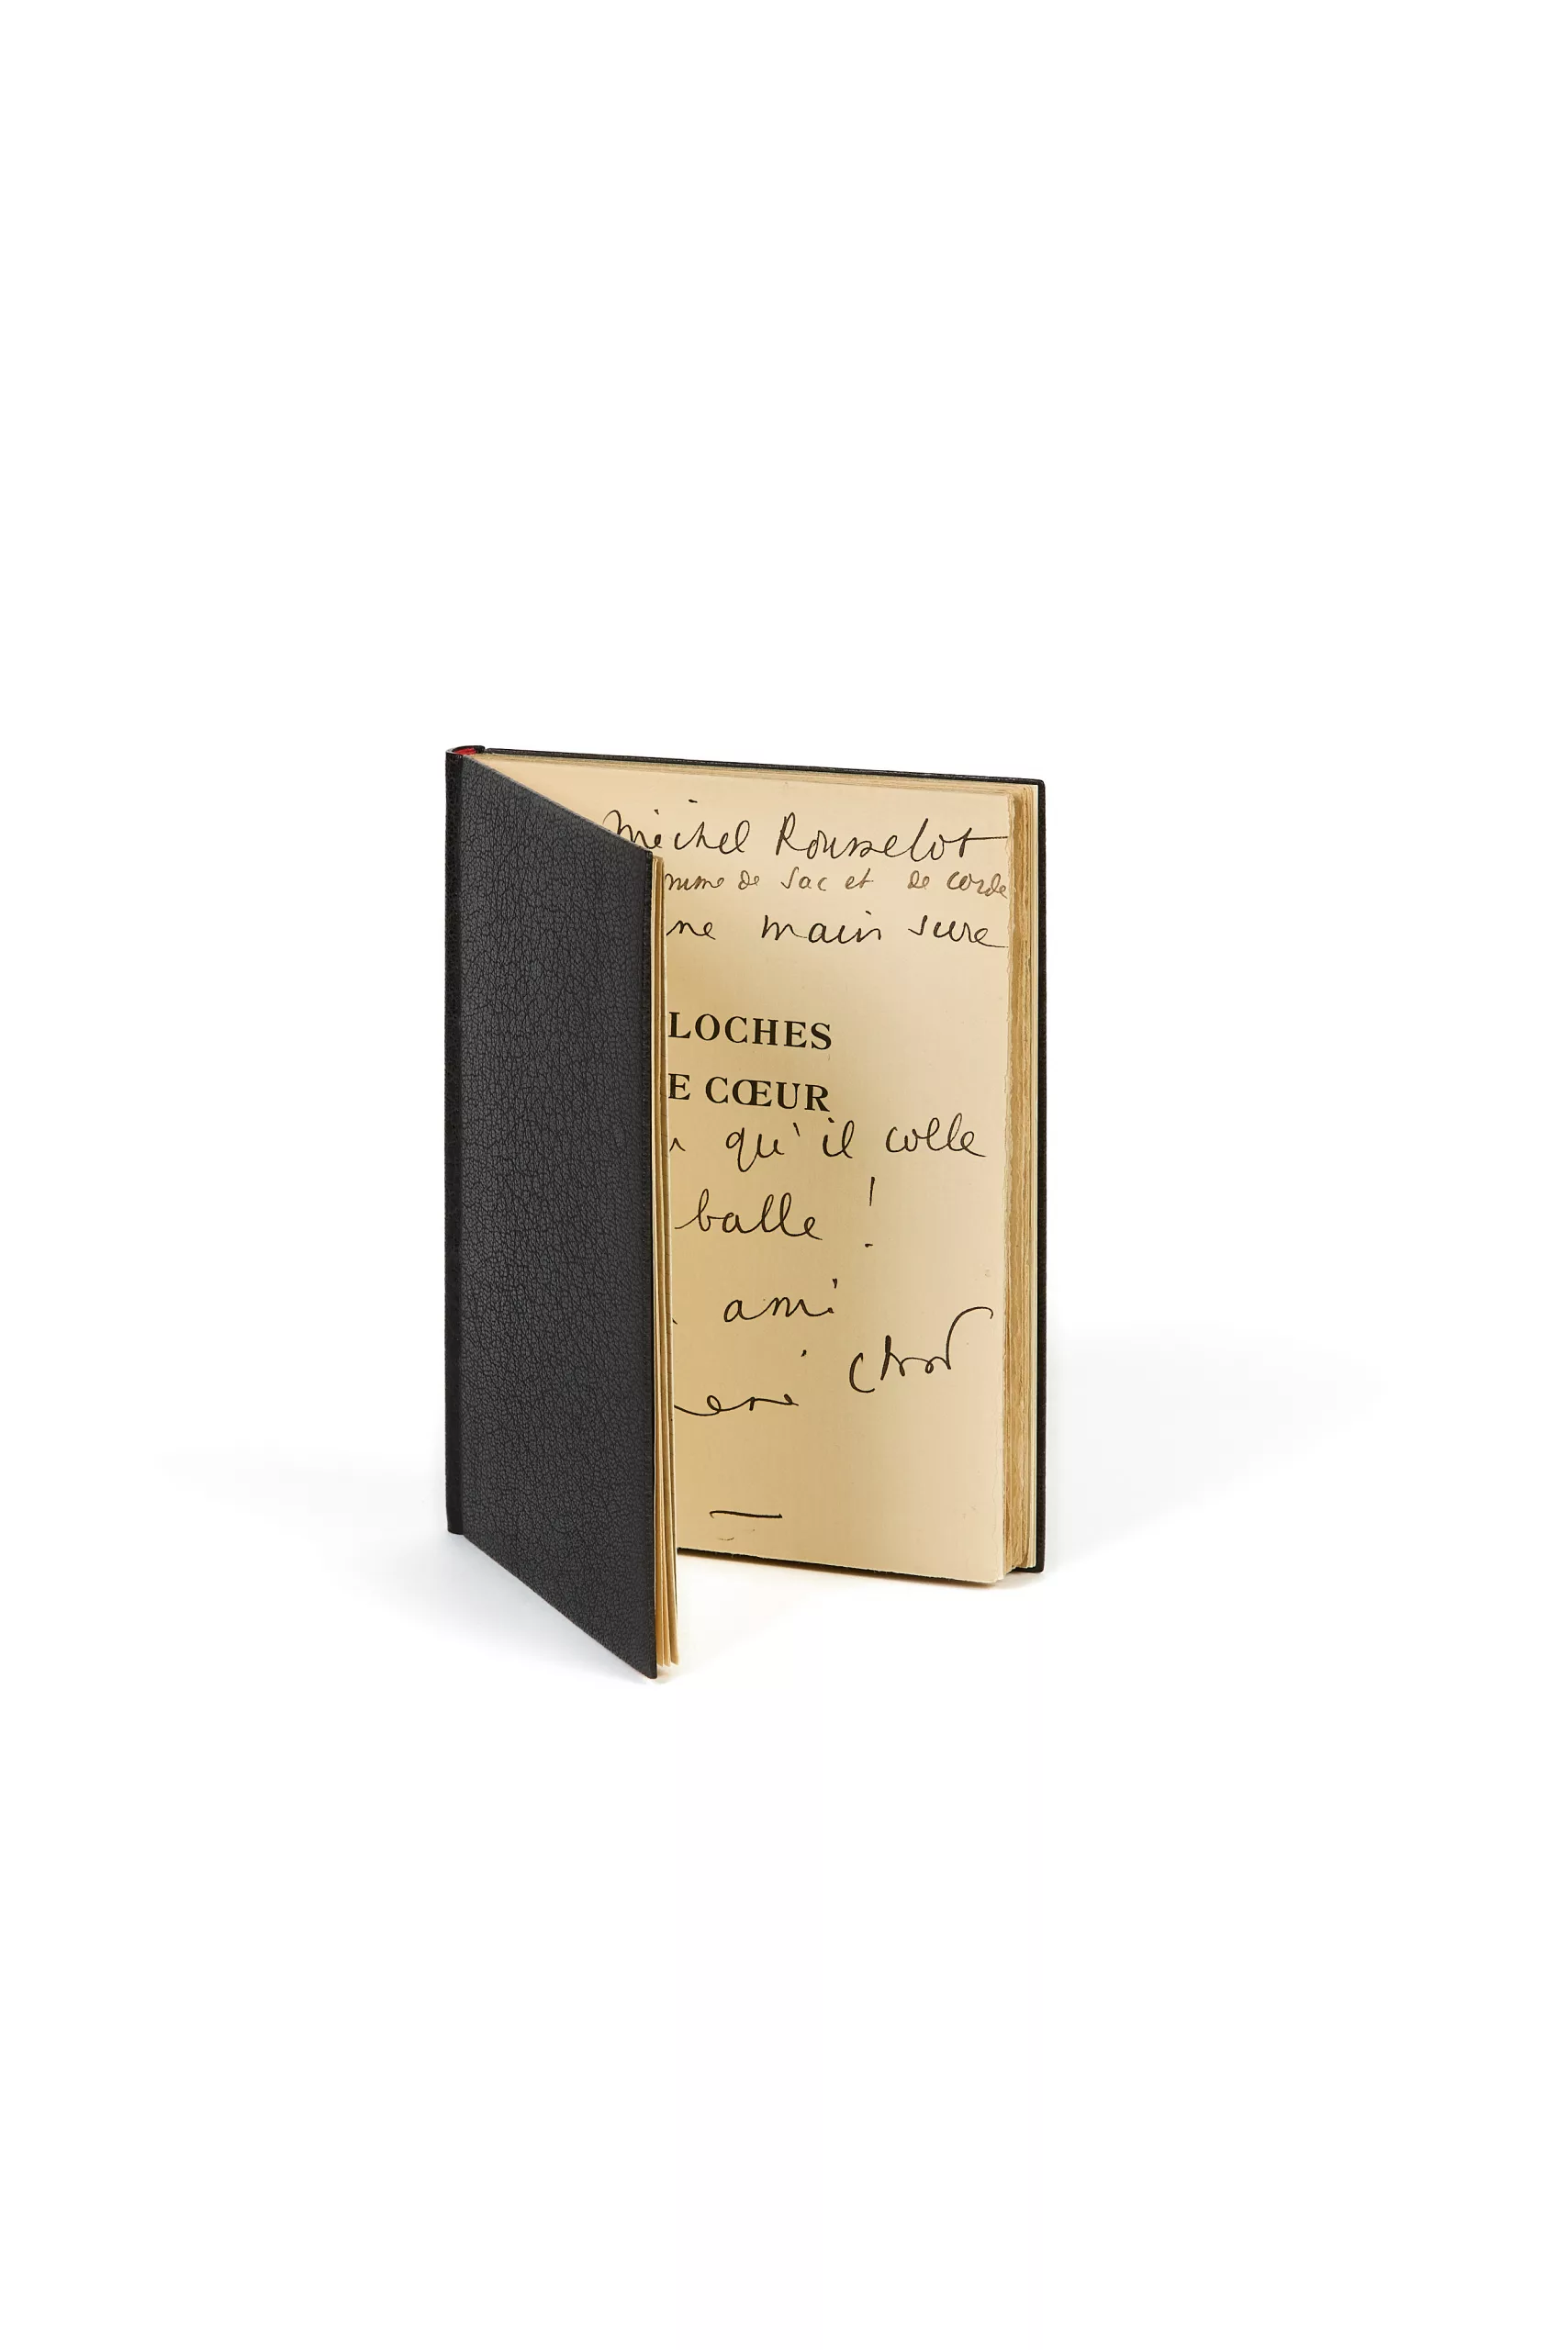 Michel Rousselot
mme de sac et de corde
ne main sure
LOCHES
E CŒUR
qu'il colle
balle !
ami
ené Char